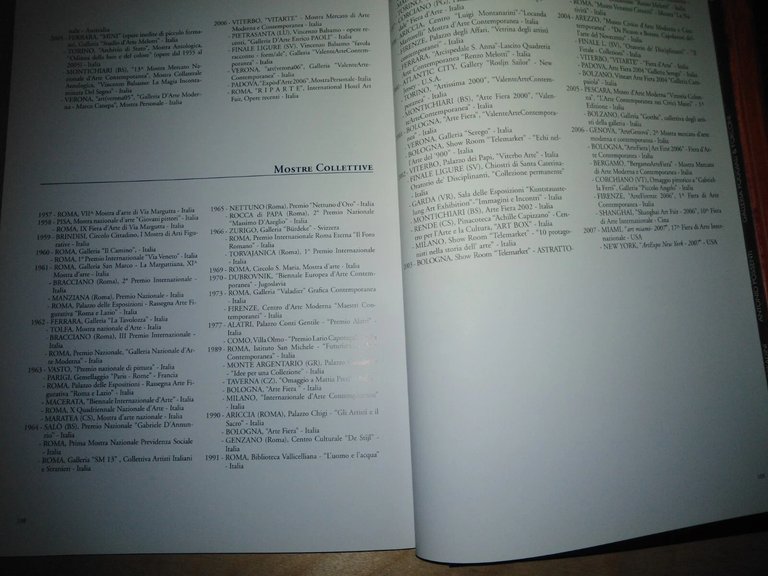 sale - Australia
2005 - FERRARA, "MINI" (opere inedite di piccolo formato), Galleria "Studio d'Arte Melotti" - Italia
- TORINO, "Archivio di Stato", Mostra Antologica,
2005) - Italia
- MONTICHIARI (BS), "13ª Mostra Mercato Nazionale
d'Arte Contemporanea", Mostra Collaterale
Antologica, "Vincenzo Balsamo La Magia
Del Segno" - Italia
- VERONA, "artverona05", "Galleria D'Arte Moderna
- Marco Canepa", Mostra Personale - Italia
2006 - VITERBO, "VITARTE" - Mostra Mercato di Arte
Moderna e Contemporanea - Italia
- PIETRASANTA (LU), Vincenzo Balsamo - "opere
recenti", "Galleria D'Arte Enrico PAOLI" - Italia
- FINALE LIGURE (SV), Vincenzo Balsamo "favola
Contemporanea" - Italia
- VERONA, "artverona06", "Galleria "ValenteArte-
Contemporanea" - Italia
- PADOVA, "Zapod'Arte 2006", Mostra Personale - Italia
- ROMA, "RIPARTE", International Hotel Art
Fair, Opere recenti - Italia
MOSTRE COLLETTIVE
1957 - ROMA, VIIª Mostra d'arte di Via Margutta - Italia
1958 - PISA, Mostra nazionale d'arte "Giovani pittori" - Italia
- ROMA, IX Fiera d'arte di Via Margutta - Italia
1959 - BRINDISI, Circolo Cittadino, I Mostra di Arti Figurative
- Italia
1960 - ROMA, Galleria "Il Camino" - Italia
- ROMA, 1° Premio Internazionale "Via Veneto" - Italia
1961 - ROMA, Galleria San Marco - La Marguttiana, XIª
Mostra d'arte - Italia
- BRACCIANO (Roma), 2° Premio Internazionale
- Italia
- MANZIANA (Roma), Premio Nazionale - Italia
- ROMA, Palazzo delle Esposizioni - Rassegna Arte Figurativa
"Roma e Lazio" - Italia
1962 - FERRARA, Galleria "La Tavolozza" - Italia
- TOLFA, Mostra nazionale d'arte - Italia
- BRACCIANO (Roma), III Premio Internazionale -
Italia
- ROMA, Premio Nazionale, "Galleria Nazionale d'Arte
Moderna" - Italia
1963 - VASTO, "Premio nazionale di pittura" - Italia
- PARIGI, Gemellaggio "Paris - Rome" - Francia
- ROMA, Palazzo delle Esposizioni - Rassegna Arte Figurativa
"Roma e Lazio" - Italia
- MACERATA, "Biennale Internazionale d'Arte" - Italia
- ROMA, X Quadriennale Nazionale d'Arte - Italia
- MARATEA (CS), Mostra d'arte nazionale - Italia
1964 - SALÒ (BS), Premio Nazionale "Gabriele D'Annunzio"
- Italia
- ROMA, Prima Mostra Nazionale Previdenza Sociale
- Italia
- ROMA, Galleria "SM 13", Collettiva Artisti Italiani
e Stranieri - Italia
1965 - NETTUNO (Roma), Premio "Nettuno d'Oro" - Italia
- ROCCA di PAPA (Roma), 2° Premio Nazionale
"Massimo D'Azeglio" - Italia
1966 - ZURIGO, Galleria "Burdeke" - Svizzera
- ROMA, Premio Internazionale Roma Eterna "Il Foro
Romano" - Italia
- TORVAJANICA (Roma), Premio Nazionale - Italia
1969 - ROMA, Circolo S. Maria, Mostra d'arte - Italia
1970 - DUBROVNIK, "Biennale Europea d'Arte Contemporanea"
- Jugoslavia
1973 - ROMA, Galleria "Valadier" Grafica Contemporanea
- Italia
- FIRENZE, Centro d'Arte Moderna "Maestri Contemporanei"
- Italia
1977 - ALATRI, Palazzo Conti Gentile - "Premio Alatri" -
Italia
- COMO, Villa Olmo - "Premio Lario Cadorago" - Italia
1989 - ROMA, Istituto San Michele - "Futurism
Contemporanea" - Italia
- MONTE ARGENTARIO (GR), Palazzo
- "Idee per una Collezione" - Italia
- TAVERNA (CZ), "Omaggio a Mattia Preti"
- BOLOGNA, "Arte Fiera" - Italia
- MILANO, "Internazionale d'Arte Contemporanea"
- Italia
1990 - ARICCIA (ROMA), Palazzo Chigi - "Gli Artisti e il
Sacro" - Italia
- BOLOGNA, "Arte Fiera" - Italia
- GENZANO (Roma), Centro Culturale "De Stijl" -
Italia
1991 - ROMA, Biblioteca Vallicelliana - "L'uomo e l'acqua"
- Italia
108
- ARICCIA, Centro "Luigi Montanarini" "Locanda
Martorelli" Mostra d'Arte Contemporanea - Italia
- FIRENZE, Palazzo degli Affari, "Vetrina degli artisti
contemporanei" - Italia
- FERRARA, "Acquedale S. Anna"-Lascito Quadreria
d'Arte Contemporanea "Renzo Melotti" - Italia
- ATLANTIC CITY, Gallery "Roslyn Sailor" - New
Jersey - U.S.A.
- TORINO, "Artissima 2000", "ValenteArteContemporanea"
- Italia
- MONTICHIARI (BS), "Arte Fiera 2000", "ValenteArteContemporanea"
- Italia
- BOLOGNA, "Arte Fiera", "ValenteArteContemporanea"
- Italia
- VERONA, Galleria "Serego" - Italia
- BOLOGNA, Show Room "Telemarket" - "Echi nell'Arte
del '900" - Italia
- VITERBO, Palazzo dei Papi, "Viterbo Arte" - Italia
- FINALE LIGURE (SV), Chiostri di Santa Caterina-
Oratorio de' Disciplinanti, "Collezione permanente"
- Italia
- GARDA (VR), Sala delle Esposizioni "Kunstaustellung
Art Exhibition" - "Immagini e Incontri" - Italia
- MONTICHIARI (BS), Arte Fiera 2002 - Italia
- RENDE (CS), Pinacoteca "Achille Capizzano" - Centro
per l'Arte e la Cultura, "ART BOX" - Italia
- MILANO, Show Room "Telemarket" - "10 protagonisti
nella storia dell'arte" - Italia
2003 - BOLOGNA, Show Room "Telemarket" - ASTRATTO-
2004 - AREZZO, "Museo Civico d'Arte Moderna e Contemporanea"
- "Da Picasso a Botero: Capolavori dell'Arte
del Novecento" - Italia
- FINALE L. (SV), "Oratorio de' Disciplinanti" - Italia
- VITERBO, "VITARTE" "Fiera d'Arte" - Italia
- PADOVA, Arte Fiera 2004 "Galleria Serego" - Italia
- BOLZANO, Vintart Arte Fiera 2004 "Galleria Melotti" - Italia
2005 - PESCARA, Museo d'Arte Moderna "Vittoria Colonna",
Edizione - Italia
- BOLZANO, Galleria "Goethe", collettiva degli artisti
della galleria - Italia
2006 - GENOVA, "ArteGenova", 2ª Mostra mercato d'arte
moderna e contemporanea - Italia
- BOLOGNA, "ArteFiera|Art First 2006" - Fiera d'Arte
Contemporanea - Italia
- BERGAMO, "BergamoArteFiera" - Mostra Mercato
di Arte Moderna e Contemporanea - Italia
- CORCHIANO (VT), Omaggio pittorico a "Gabriella
Ferri", Galleria "Piccolo Angelo" - Italia
- FIRENZE, "ArteFirenze 2006", 1ª Fiera di Arte
Contemporanea - Italia
- SHANGHAI, "Shanghai Art Fair - 2006", 10ª Fiera
di Arte Internazionale - Cina
2007 - MIAMI, "art miami- 2007", 17ª Fiera di Arte Internazionale
- USA
- NEW YORK, "ArtExpo New York - 2007" - USA
109